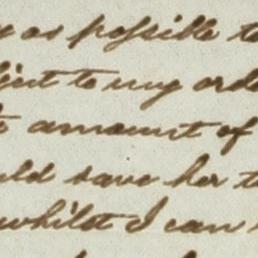 as possible to
ject to my orde
amount of
uld save her t
whilst I can